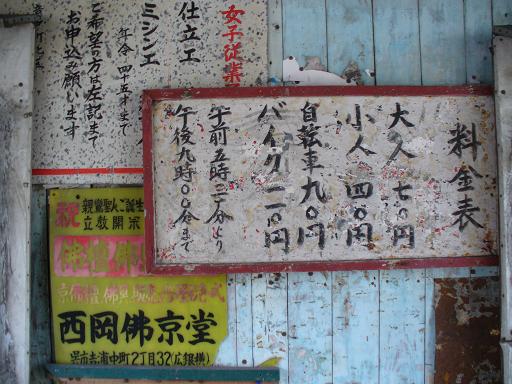 料金表
大人 七〇円
小人 四〇円
自転車 九〇円
バイク 一一〇円
午前 五時三〇分より
午後 九時〇〇分まで
女子従業
仕立工
ミシン工
年令 四十五才まで
ご希望の方は左記まで
お申込み願います
祝
親鸞聖人ご誕生
立教開宗
佛壇佛
京佛壇 佛具
西岡佛京堂
呉市吉浦中町2丁目32(広銀横)